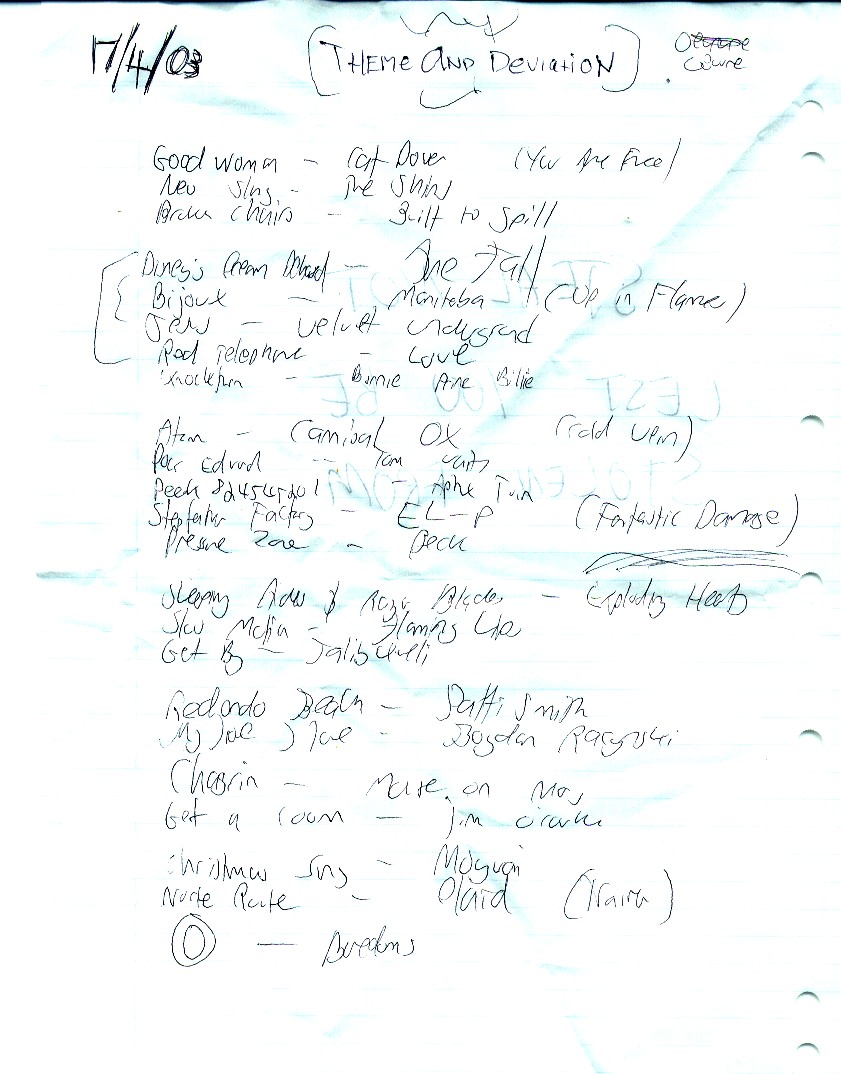 17/4/03
[THEME AND DEVIATION]
Good woman - Cat Power (You Are Free)
New Slang - The Shins
Broken Chairs - Built to Spill
Disney's Dream Debased - The Fall
Bijoux - Manitoba (Up in Flames)
Jesus - Velvet Underground
Red Telephone - Love
Knockturn - Bonnie Prince Billie
Atom - Cannibal OX (Cold Vein)
Poor Edward - Tom Waits
Peek 82454201 - Aphex Twin
Stepfather Factory - EL-P (Fantastic Damage)
Pressure Zone - Beck
Sleeping Aides & Razor Blades - Exploding Hearts
Slow Motion - Flaming Lips
Get By - Talib Kweli
Redondo Beach - Patti Smith
My Love I Love - Bogdan Raczynski
Chagrin - Mouse on Mars
Get a room - Jim O'Rourke
Christmas Song - Mogwai
North Route - Plaid (Trainer)
- Boredoms
LEST YOU BE
STOLEN FROM